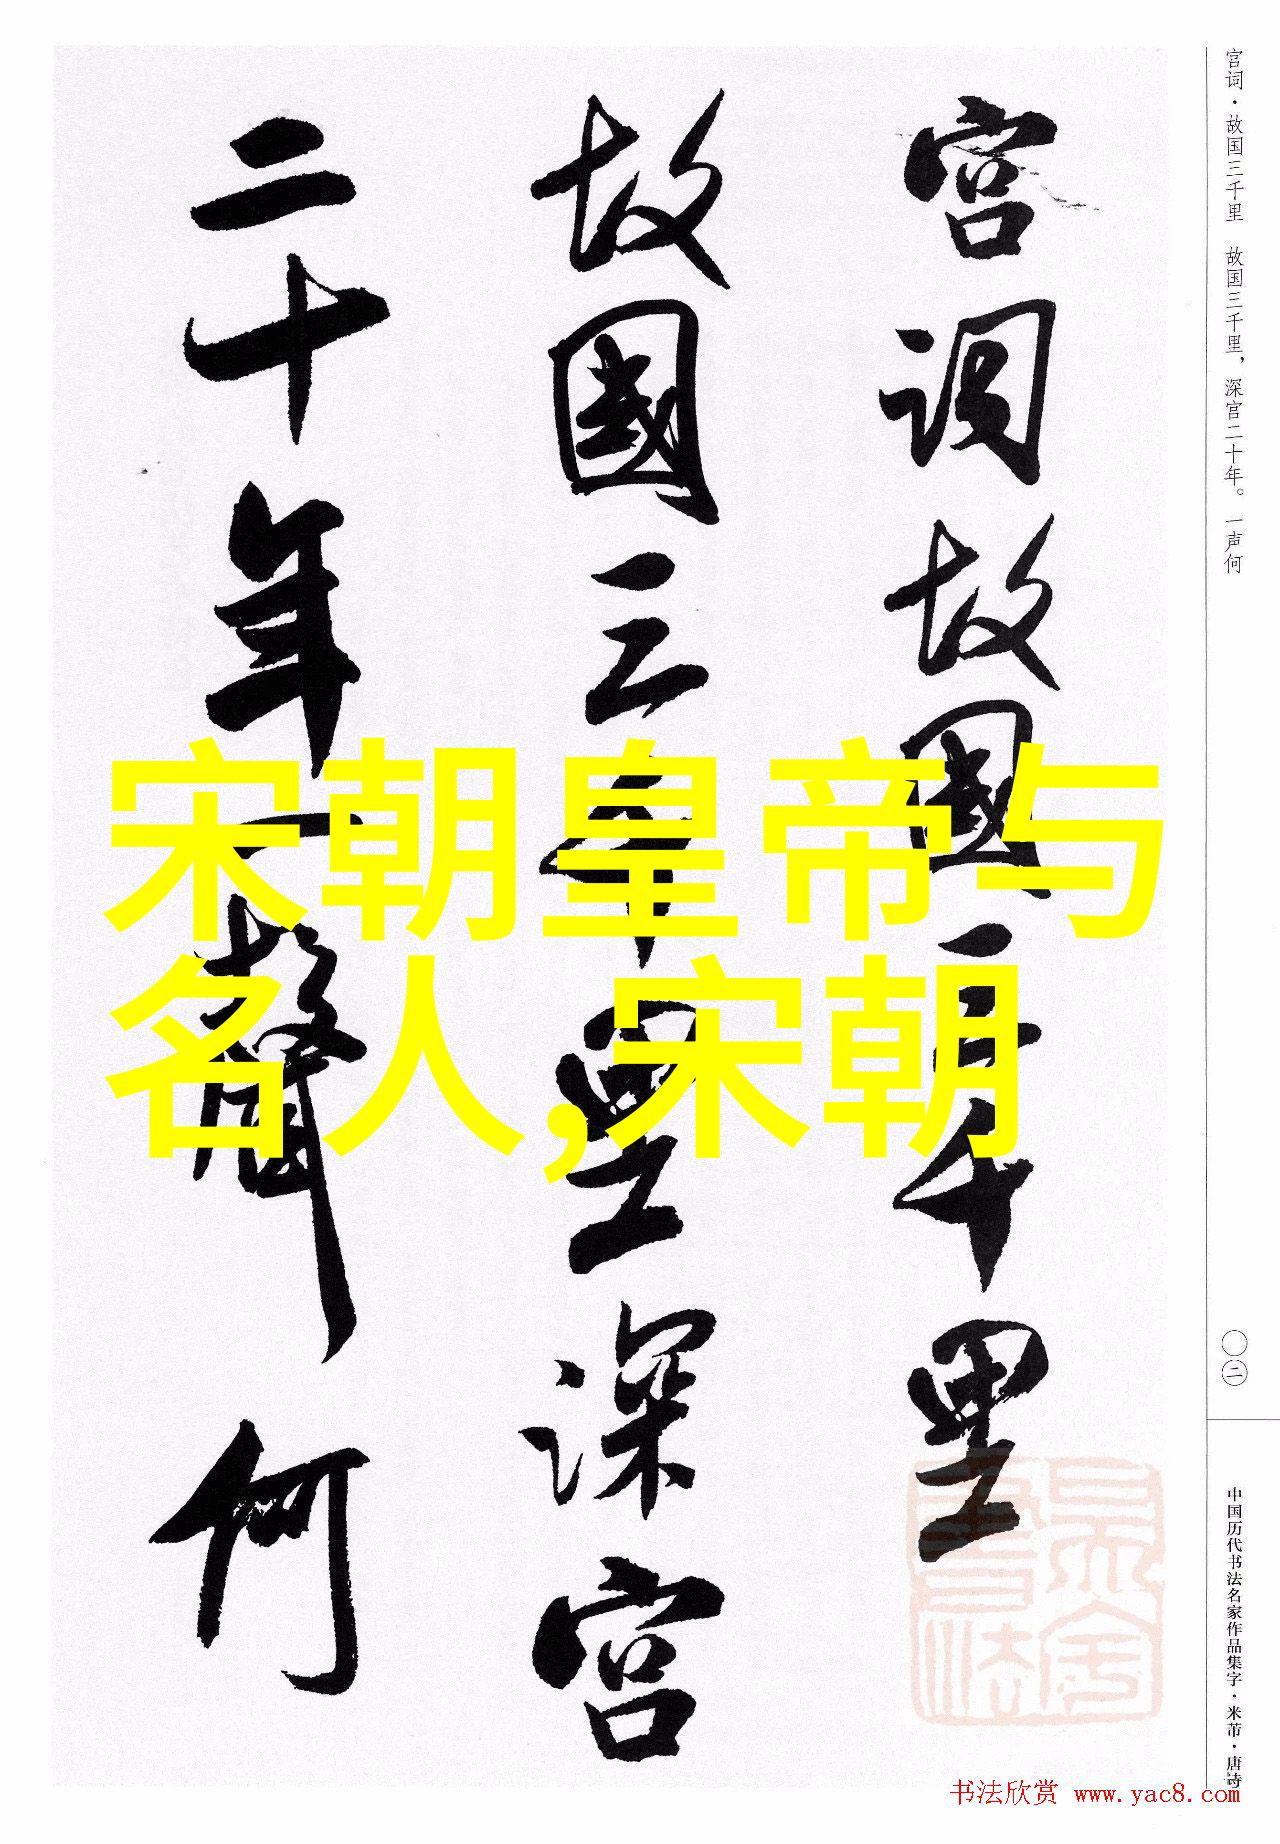 宫词·故国三千里　故国三千里，深宫二十年。一声何
宫词故國三千里
故國三千里深宫
二十年一聲何
宋朝皇帝与
名人,宋朝
〇二
中国历代书法名家作品集字·米芾·唐诗
书法欣赏 www.yac8.com